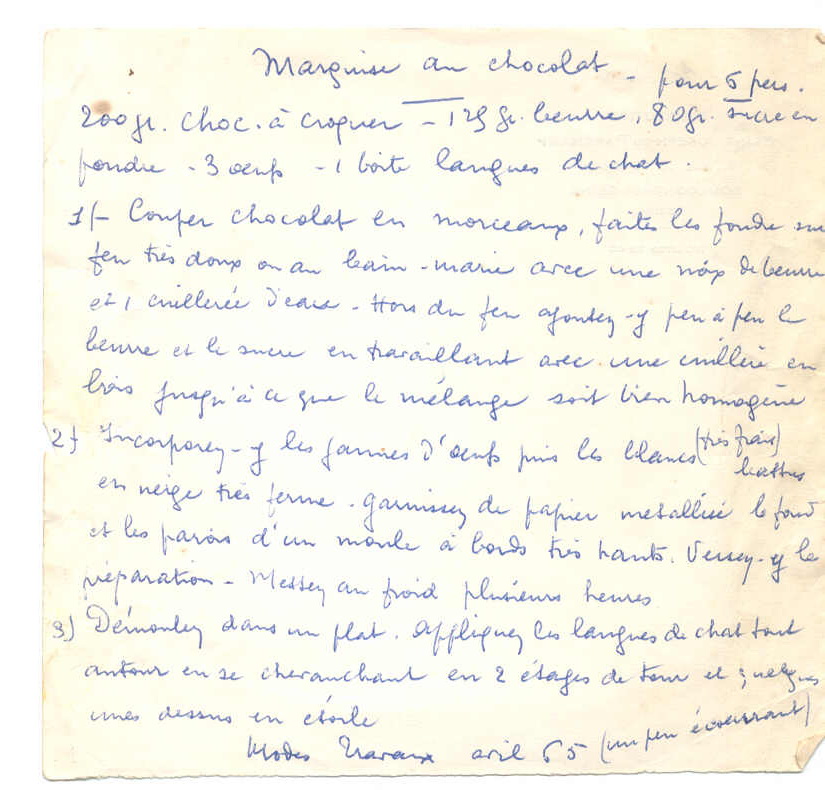 Marquise au chocolat - pour 6 pers.
200gr. choc. à croquer - 125 gr. beurre, 80gr. sucre en
poudre - 3 oeufs - 1 boîte langues de chat.
1/- Couper chocolat en morceaux, faites les fondre sur
feu très doux ou au bain-marie avec une noix de beurre
et 1 cuillerée d'eau - Hors du feu ajoutez-y peu à peu le
beurre et le sucre en travaillant avec une cuillère en
bois jusqu'à ce que le mélange soit bien homogène
2) Incorporez-y les jaunes d'oeufs puis les blancs (très frais) battus
en neige très ferme. Garnissez de papier metallisé le fond
et les parois d'un moule à bords très hauts. Versez-y la
préparation - Mettez au froid plusieurs heures
3) Démoulez dans un plat. Appliquez les langues de chat tout
autour en se chevauchant en 2 étages de tour et quelques
unes dessus en étoile
Modes Travaux avril 65 (un peu écoeurant)